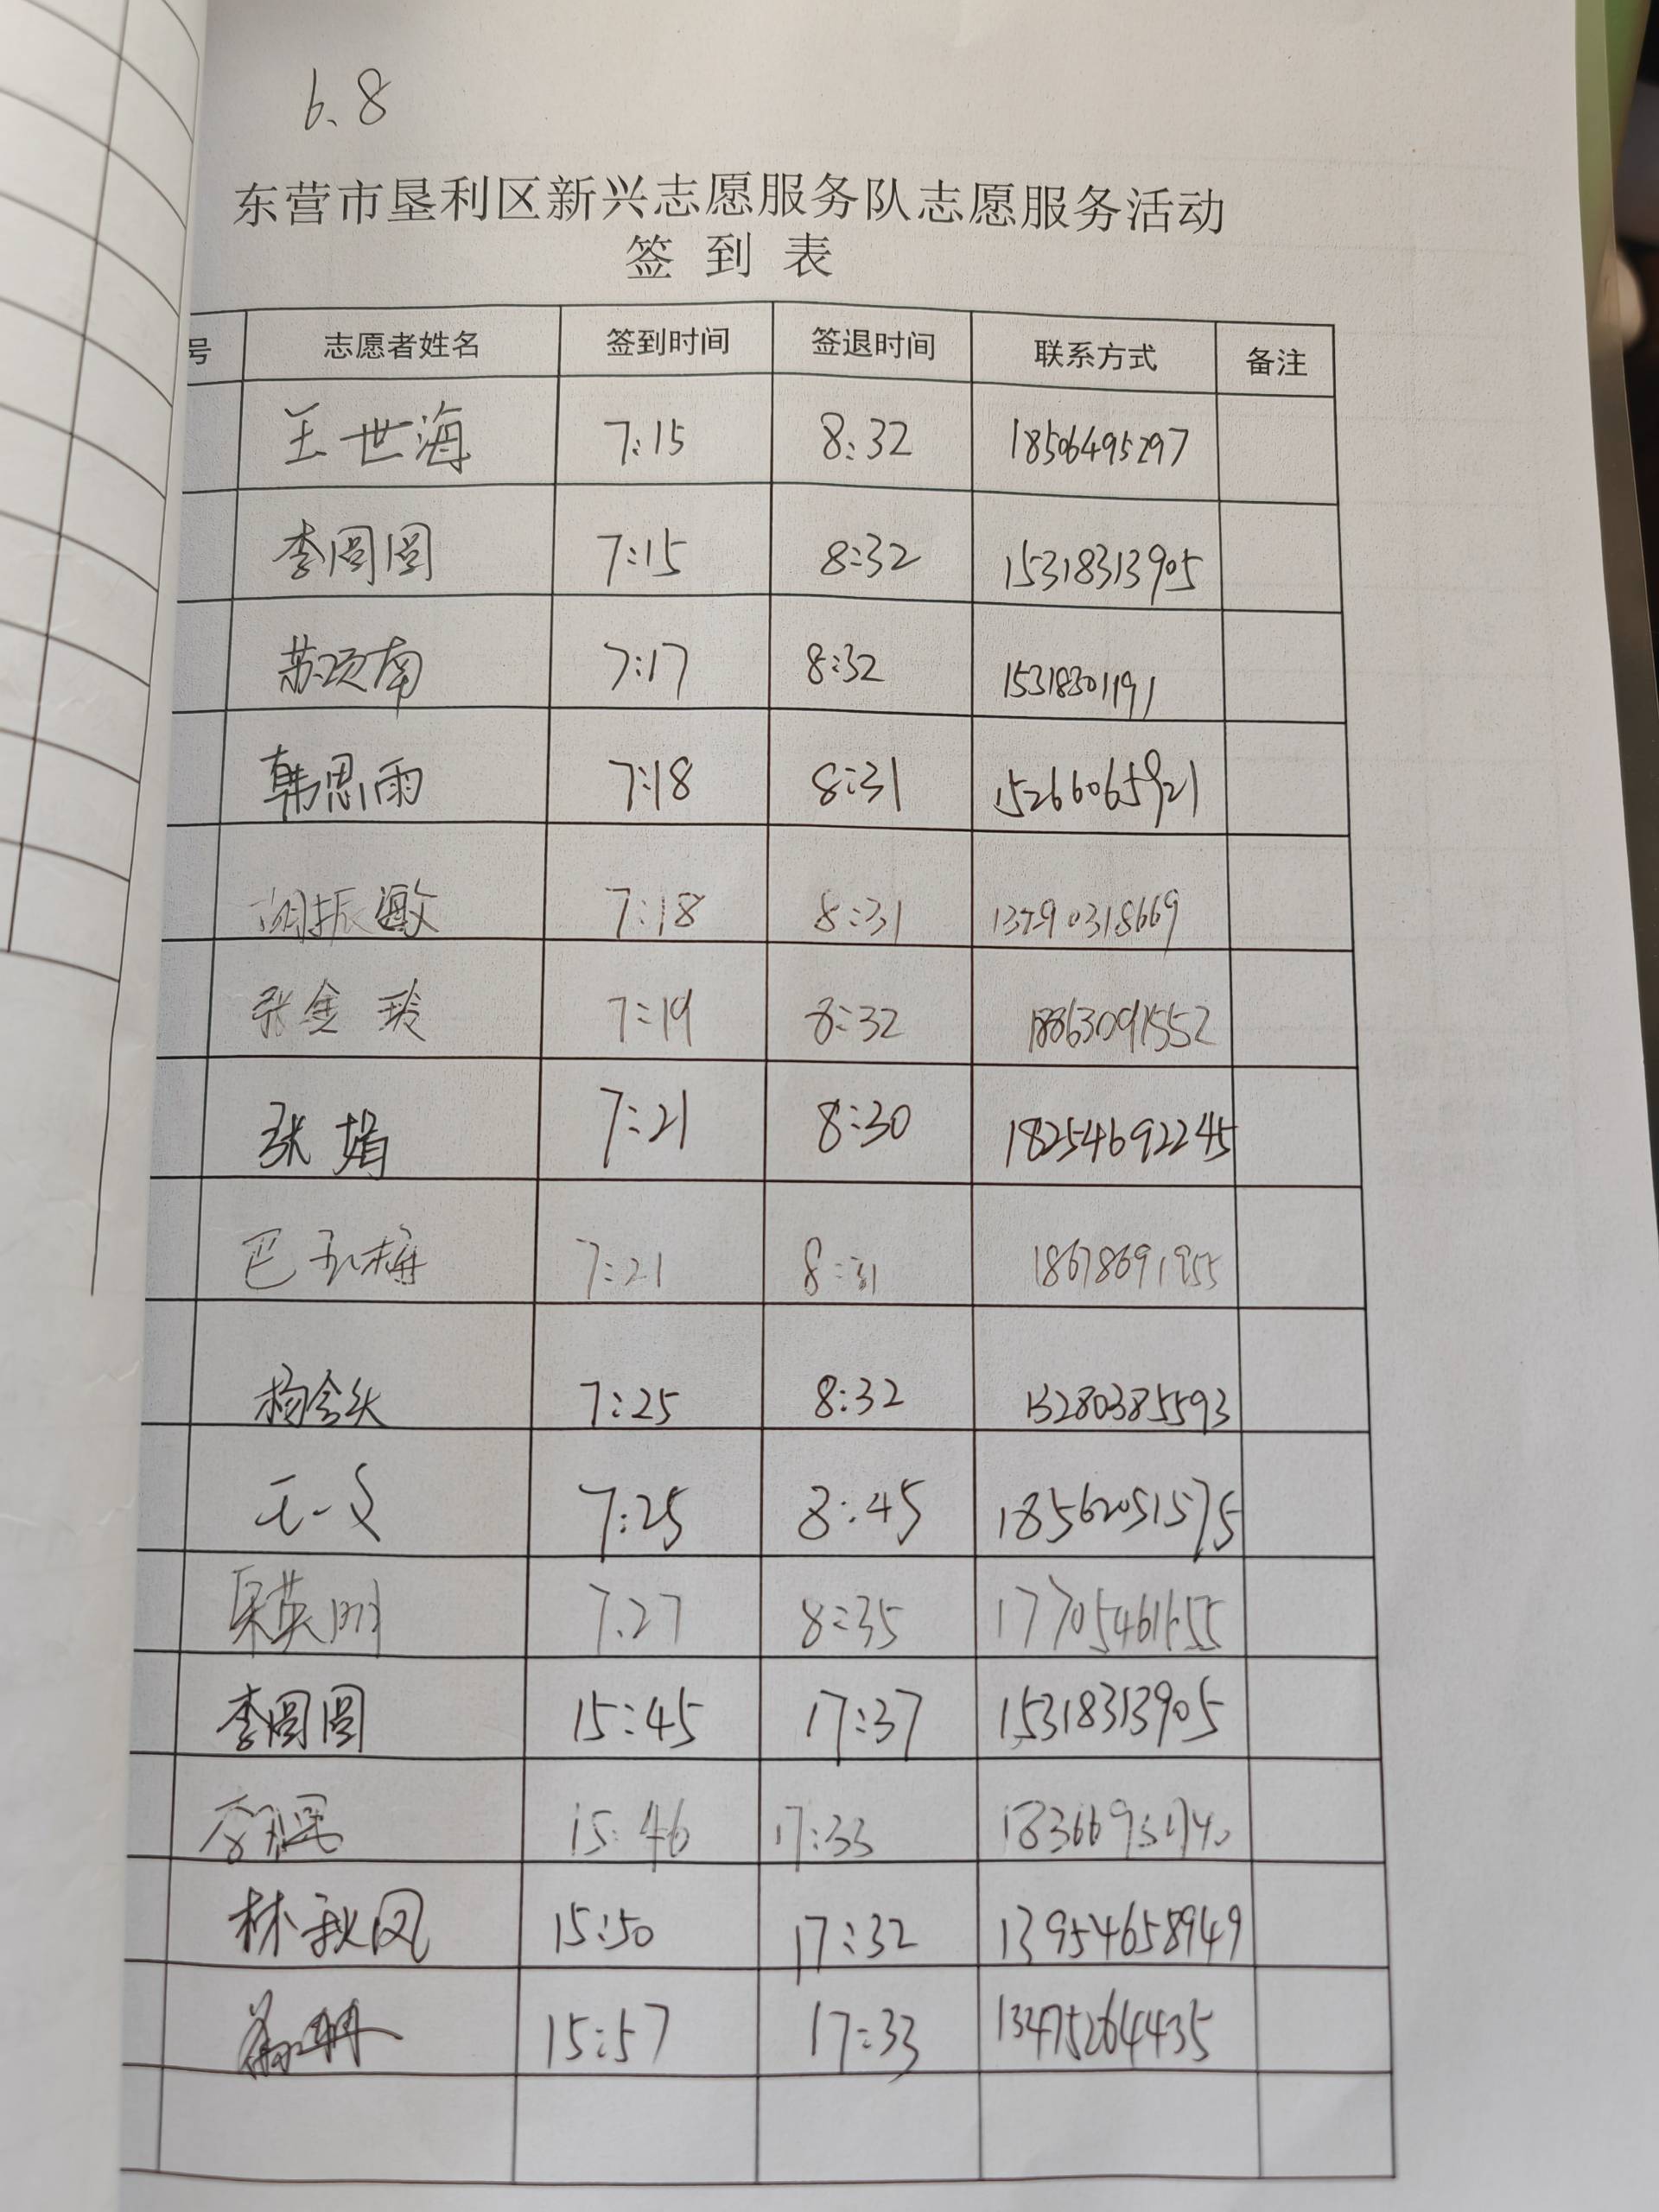 6.8
东营市垦利区新兴志愿服务队志愿服务活动
签到表
号 志愿者姓名 签到时间 签退时间 联系方式 备注
王世海 7:15 8:32 18506495297
李圆圆 7:15 8:32 15318313905
苏项南 7:17 8:32 15318301191
韩思雨 7:18 8:31 15266065921
胡振邀 7:18 8:31
张金玲 7:19 8:32 18863091552
张娟 7:21 8:30 18254692245
巴玉梅 7:21 8:31 18678691955
7:25 8:32 13280385593
7:25 8:45 18562051575
吴英明 7.27 8:35
李圆圆 15:45 17:37 15318313905
15:46 17:33
林秋风 15:50 17:32 13954658949
15:57 17:33 13475264435